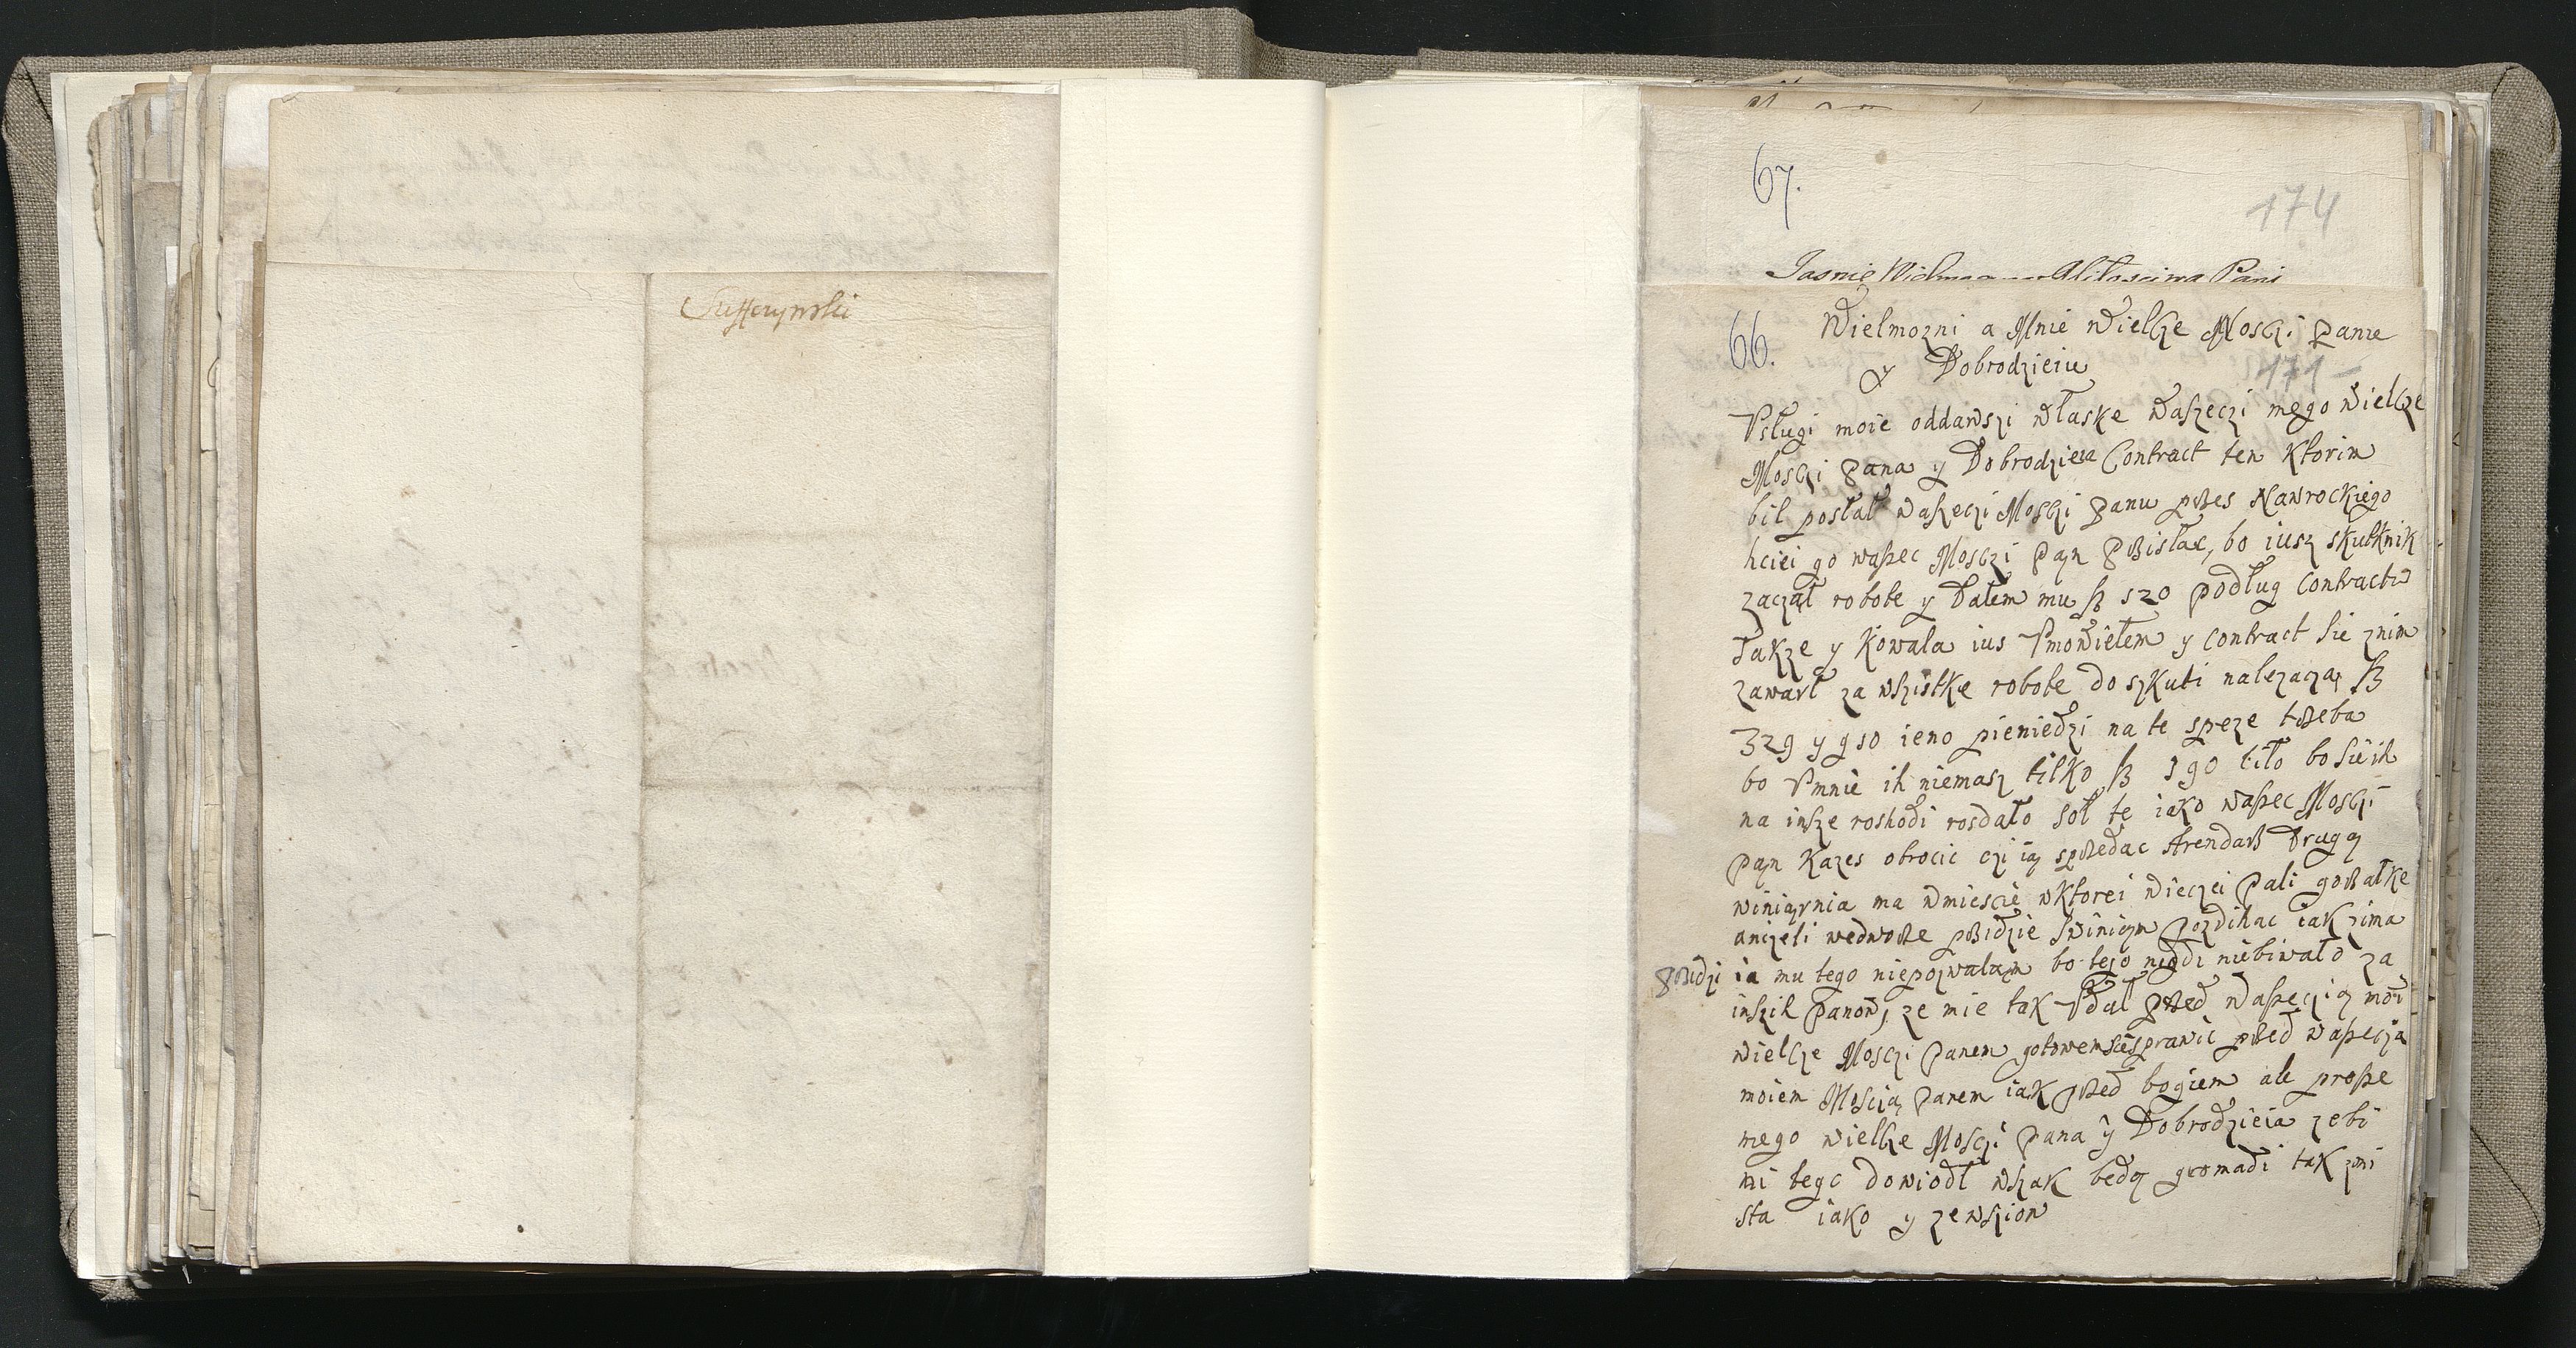 Suffczynski
67.
174
Jasnie Wielmo Miłosciwa Pani
66.
Wielmozni a Mnie Wielcze Mosczi Panie
y Dobrodzieiu
171
Vsługi moie oddawszi właske waszeczi mego wielcze
Mosczi Pana y Dobrodzieia Contract ten Ktorim
bił posłał waszeczi Mosczi Panu przes Nawrockiego
hciei go waszec Mosczi Pan Przisłac, bo iusz skutknik
zacząl robote y Dałem mu fl 120 podług Contractu
Takze y Kowala ius Vmowiełem y contract sie znim
zawarł za wszistke robote do szkuti nalezaczą fl
329 y g 10 ieno pieniedzi na te speze trzeba
bo Vmnie ih niemasz tilko fl 190 bo sie ih
na insze roshodi rosdało sol te iako waszec Mosczi
Pan Kazes obrocic czi ią sprzedac Arendarz Drugą
winiąrnia ma wmiescie wktorei wieczei Pali gorzałke
anizeli wedworze przidzie swiniąm pozdihac iak zima
ia mu tego niepozwalam bo tego nigdi niebiwało za
inszih Panow, ze mie tak Vdał przed waszeczią moi
wielcze Mosczi Panem gotowem sie sprawic przed waszecią
moiem Moscią Panem iak przed bogiem ale prosze
mego wielcze Mosczi Pana y Dobrodzieia zebi
mi tego dowiodł wszak bedą gromadi tak zmi
sta iako y zewszion